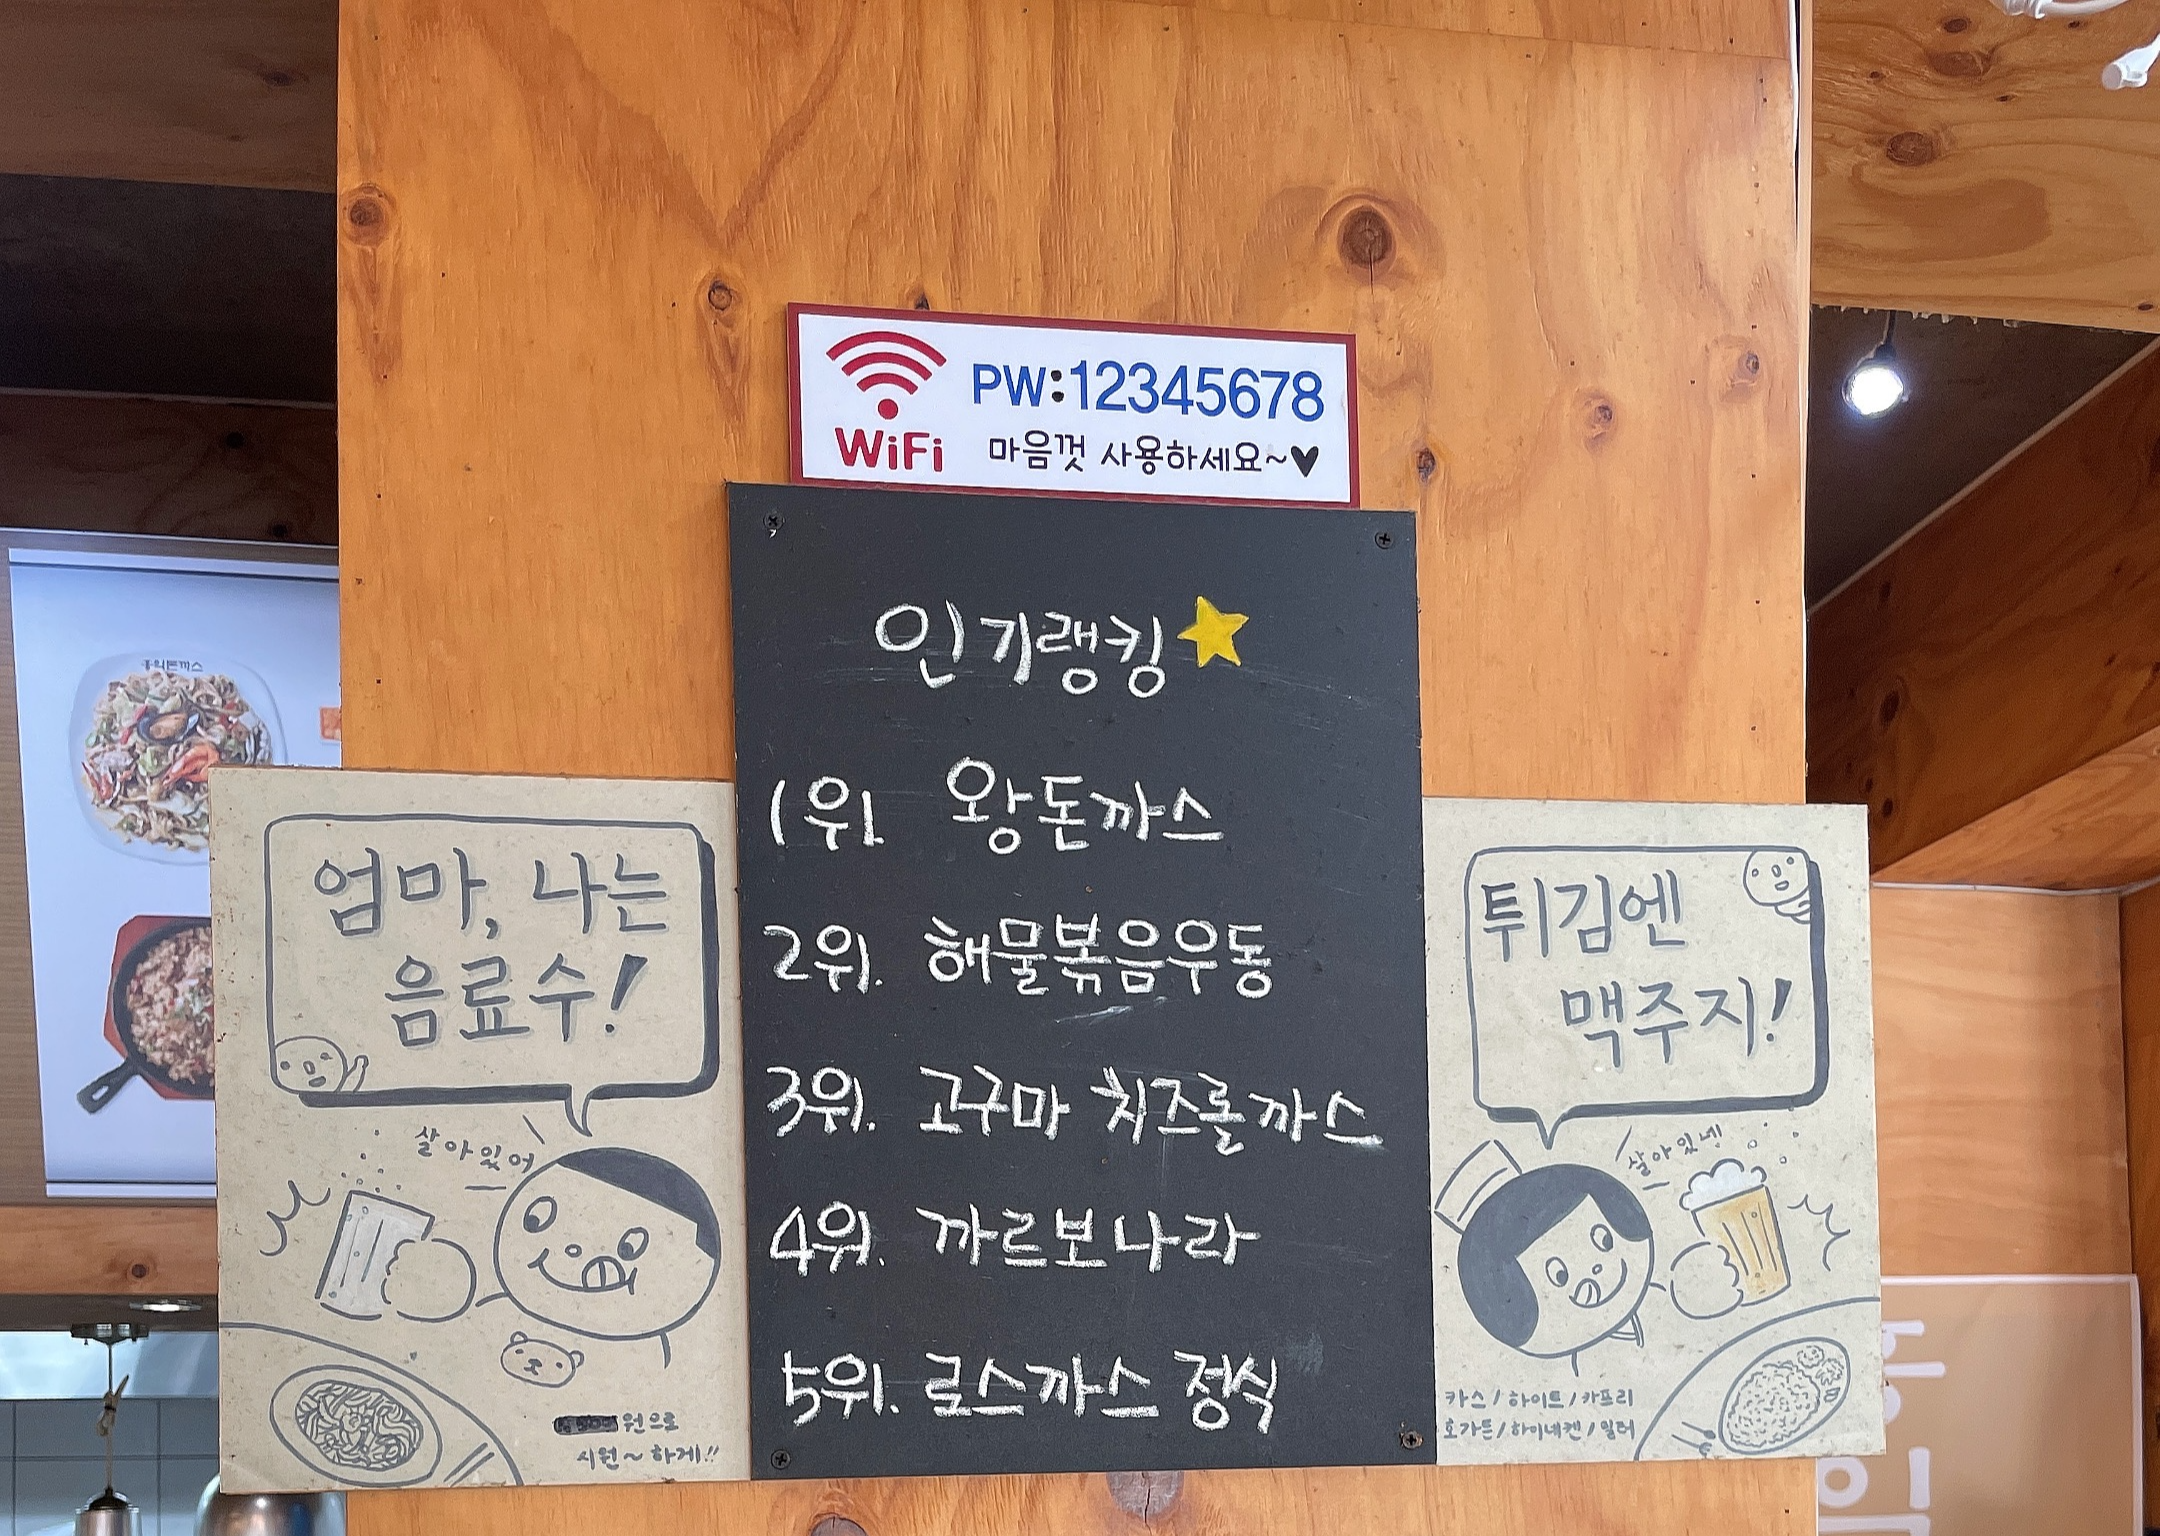 PW:12345678
WiFi 마음껏 사용하세요~♥
인기랭킹
1위. 왕돈까스
2위. 해물볶음우동
3위. 고구마 치즈롤까스
4위. 까르보나라
5위. 로스까스 정식
엄마, 나는
음료수!
살아있어
원으로
시원~하게!!
튀김엔
맥주지!
살아있네
카스/하이트/카프리
호가든/하이네켄/밀러
홍익돈까스